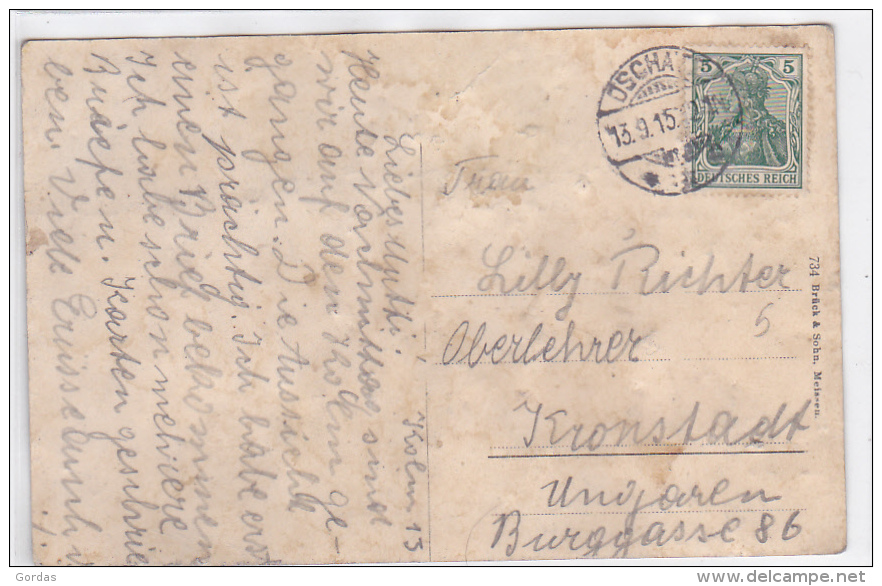 Kolm 13
Liebe Mutti!
Heute Vormittag sind
wir auf den Kolm ge-
gangen. Die Aussicht
ist prächtig. Ich habe erst
einen Brief bekommen
Ich habe schon mehrere
Briefe u. Karten geschrie
ben. Viele Grüsse
OSCHA
13.9.15.
5 5
DEUTSCHES REICH
Frau
Lilly Richter
Oberlehrer
Kronstadt
Ungaren
Burggasse 86
5
734 Brück & Sohn, Meissen.
Gordas
delcampe.net